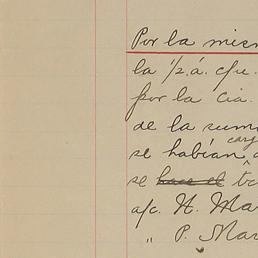 Por la mism
la 1/2. á. cfu.
por la cia.
de la sum
carg
se habían,
se hace el tr
a/c. N. Ma
" P. Mar